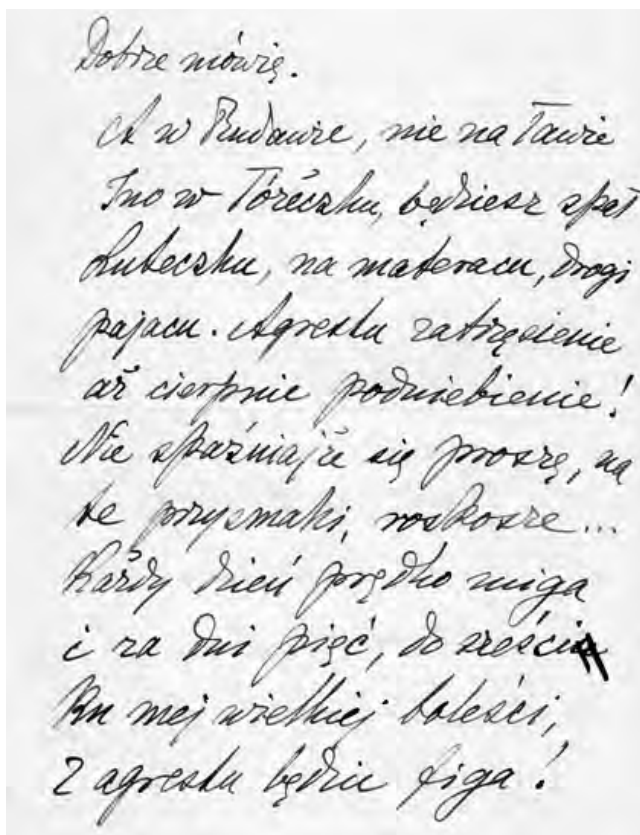 Dobrze mówię.
A w Rudawie, nie na ławie
Ino w łóżeczku, będziesz spał
Luteczku, na materacu, drogi
pajacu. Agrestu zatrzęsienie
aż cierpnie podniebienie!
Nie spaźniajże się proszę, na
te przysmaki, roskosze...
Każdy dzień prędko miga
i za dni pięć, do sześciu
Ku mej wielkiej boleści,
Z agrestu będzie figa!